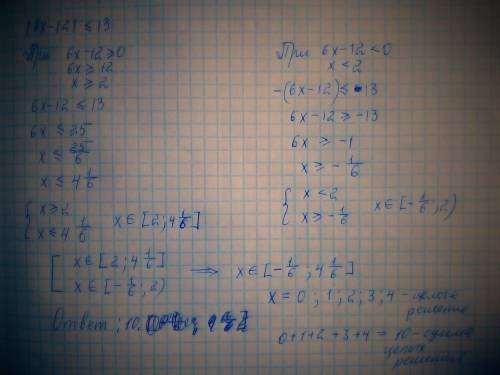 |6x-12| ≤ 13
При 6x-12≥0
6x ≥ 12
x ≥ 2
6x-12 ≤ 13
6x ≤ 25
x ≤ 25/6
x ≤ 4 1/6
{ x ≥ 2
x ≤ 4 1/6 x ∈ [2; 4 1/6]
При 6x-12<0
x < 2
-(6x-12) ≤ 13
6x-12 ≥ -13
6x ≥ -1
x ≥ -1/6
{ x < 2
x ≥ -1/6 x ∈ [-1/6; 2)
[ x ∈ [2; 4 1/6]
x ∈ [-1/6; 2) ⟹ x ∈ [-1/6; 4 1/6]
x = 0; 1; 2; 3; 4 - целые
решения
Ответ: 10.
0+1+2+3+4 = 10 - сумма
целых
решений